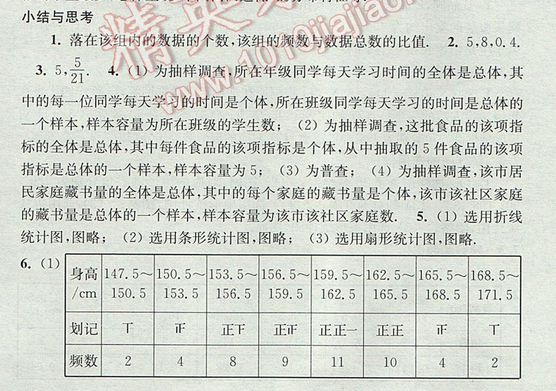 小结与思考
1. 落在该组内的数据的个数,该组的频数与数据总数的比值. 2. 5,8,0.4.
3. 5,5/21. 4. (1) 为抽样调查,所在年级同学每天学习时间的全体是总体,其
中的每一位同学每天学习的时间是个体,所在班级同学每天学习的时间是总体的
一个样本,样本容量为所在班级的学生数; (2) 为抽样调查,这批食品的该项指
标的全体是总体,其中每件食品的该项指标是个体,从中抽取的 5 件食品的该项
指标是总体的一个样本,样本容量为 5; (3) 为普查; (4) 为抽样调查,该市居
民家庭藏书量的全体是总体,其中的每个家庭的藏书量是个体,该市该社区家庭
的藏书量是总体的一个样本,样本容量为该市该社区家庭数. 5. (1) 选用折线
统计图,图略; (2) 选用条形统计图,图略; (3) 选用扇形统计图,图略.
6. (1) 身高 147.5～ 150.5～ 153.5～ 156.5～ 159.5～ 162.5～ 165.5～ 168.5～
/cm 150.5 153.5 156.5 159.5 162.5 165.5 168.5 171.5
划记 丅 正 正下 正正 正正一 正正 正 丅
频数 2 4 8 9 11 10 4 2